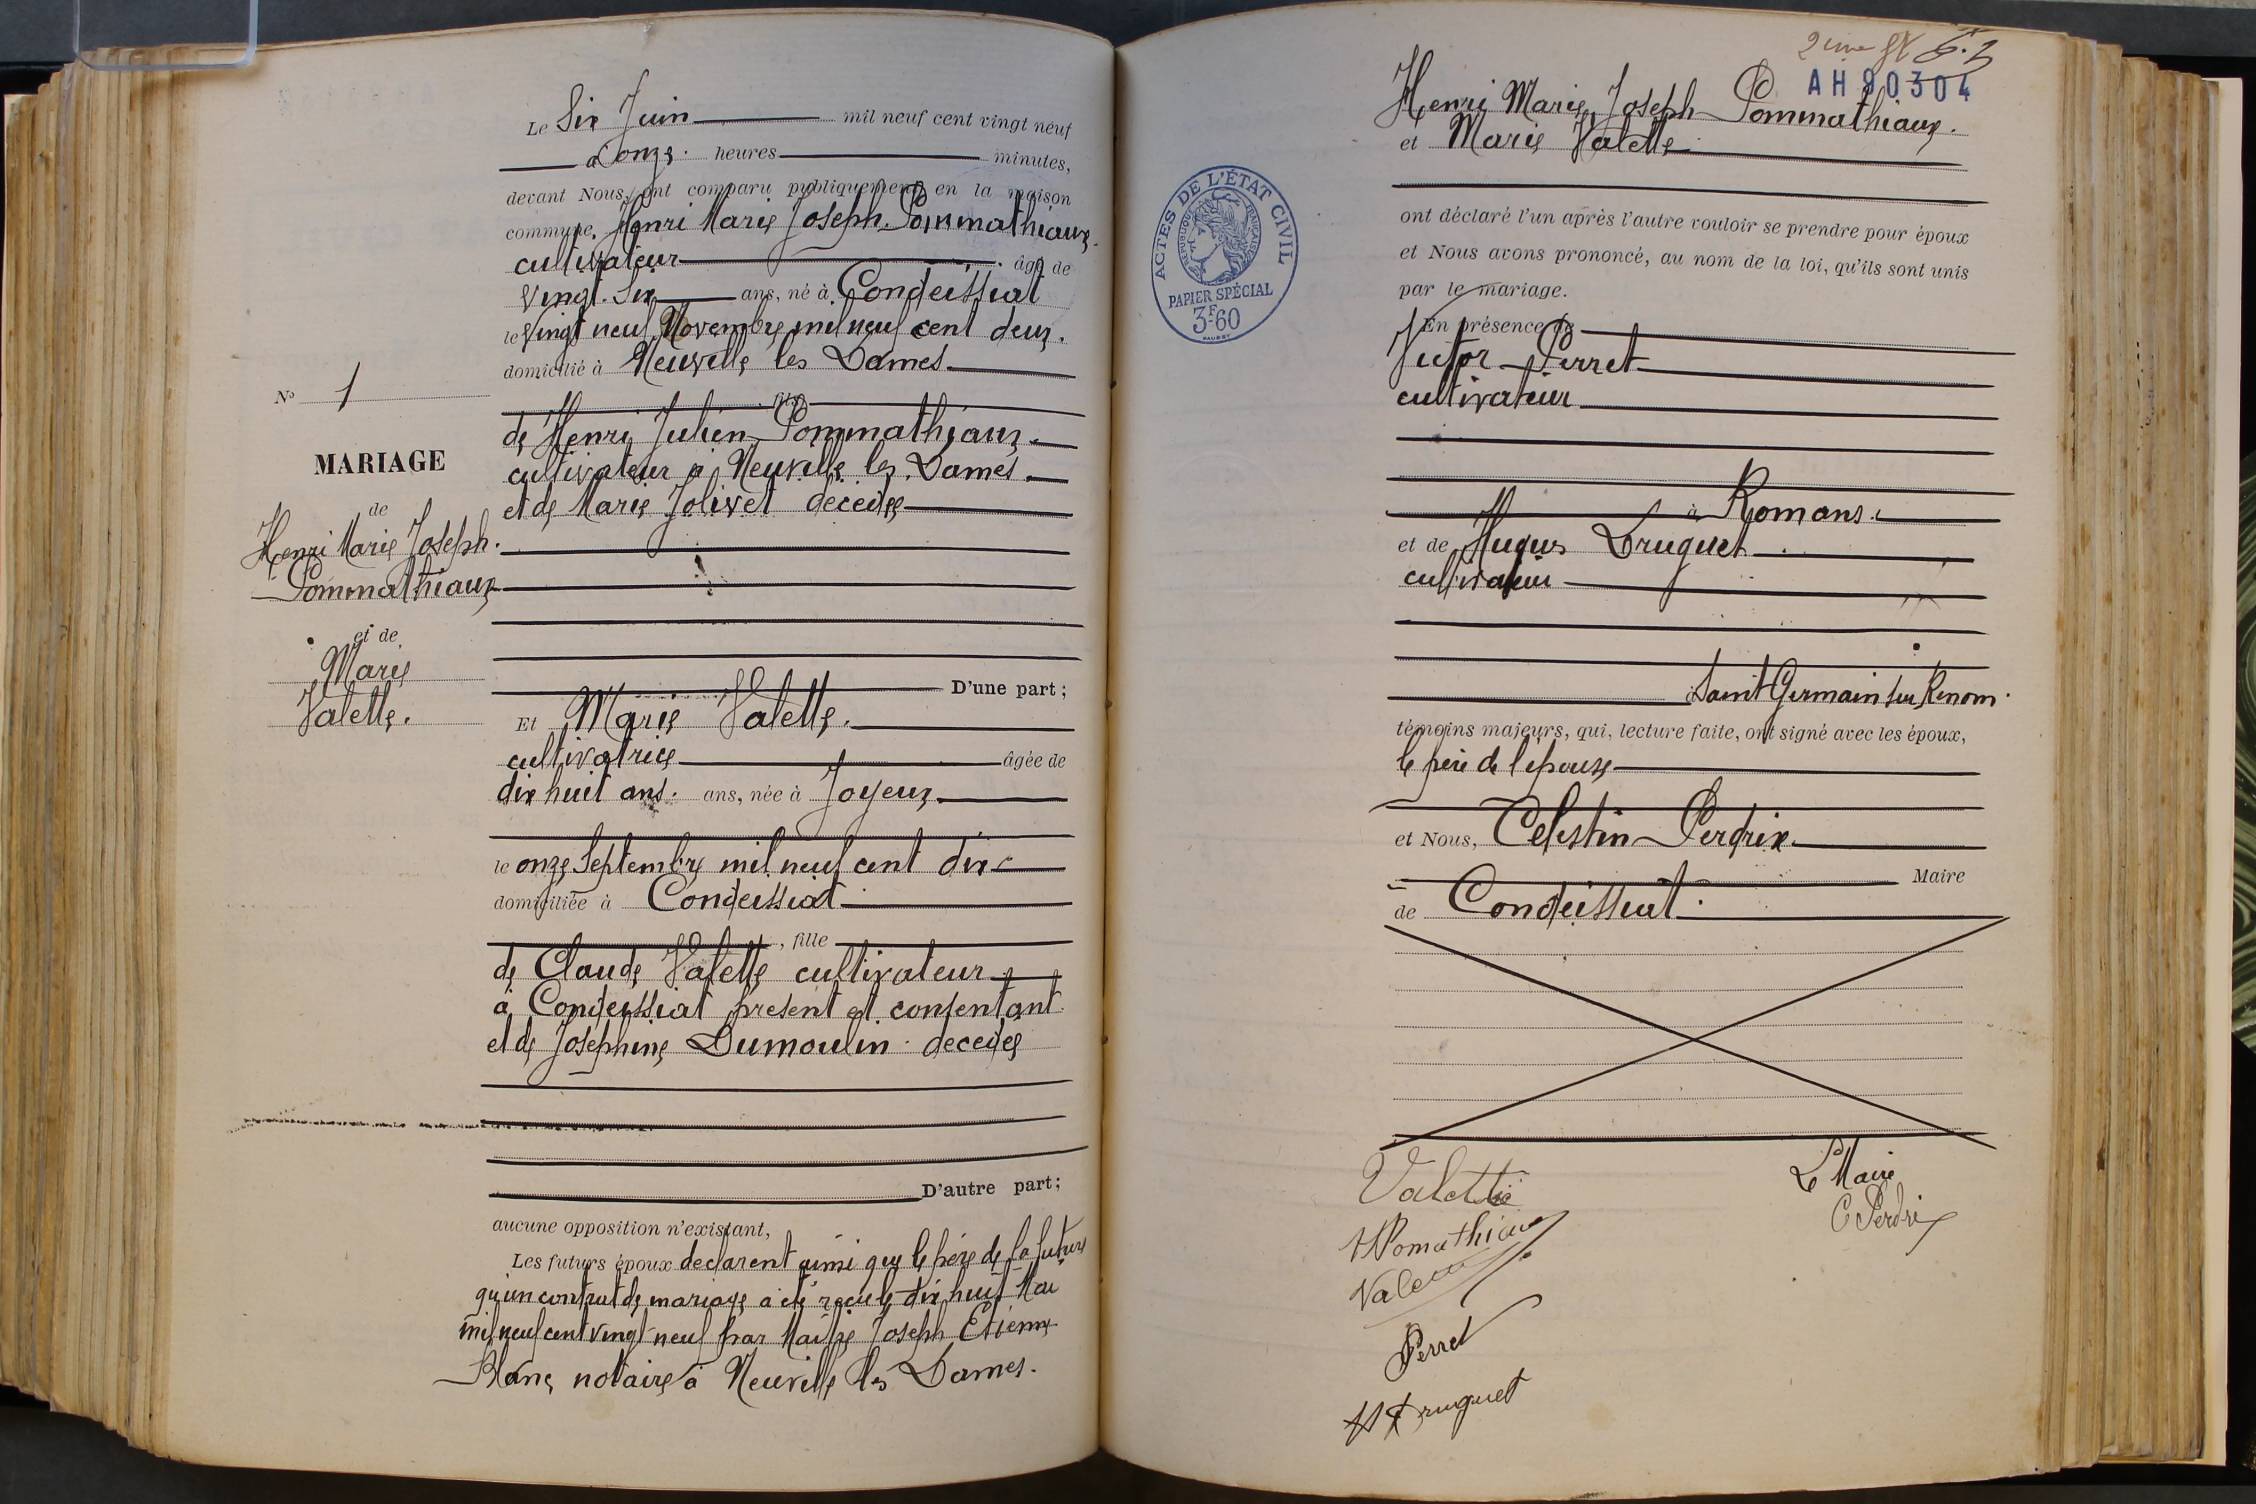 Le Six Juin mil neuf cent vingt neuf
a onze heures minutes,
devant Nous, ont comparu publiquement en la maison
commune, Henri Marie Joseph Pommathiaux
cultivateur âgé de
vingt-six ans, né à Condeissiat
le vingt neuf Novembre mil neuf cent deux.
domicilié à Neuville les Dames
fils
de Henri Julien Pommathiaux
cultivateur à Neuville les Dames
et de Marie Jolivet décédée
N° 1
MARIAGE
de
Henri Marie Joseph
Pommathiaux
et de
Marie
Valette.
D'une part ;
Et Marie Valette.
cultivatrice âgée de
dix huit ans. ans, née à Joyeux
le onze Septembre mil neuf cent dix
domiciliée à Condeissiat
, fille
de Claude Valette cultivateur
à Condeissiat présent et consentant
et de Josephine Dumoulin decedée
D'autre part ;
aucune opposition n'existant,
Les futurs époux declarent ainsi que le père de la future
qu'un contrat de mariage a été reçu le dix huit Mai
mil neuf cent vingt neuf par Maitre Joseph Etienne
Blanc notaire à Neuville les Dames.
2ème
AH 90304
Henri Marie Joseph Pommathiaux.
et Marie Valette
ont déclaré l'un après l'autre vouloir se prendre pour époux
et Nous avons prononcé, au nom de la loi, qu'ils sont unis
par le mariage.
ACTES DE L'ÉTAT CIVIL
RÉPUBLIQUE FRANÇAISE
PAPIER SPÉCIAL
3F60
En présence de
Victor Perret
cultivateur
à Romans.
et de Hugues Druguet
cultivateur
Saint Germain sur Renom.
témoins majeurs, qui, lecture faite, ont signé avec les époux,
le père de l'épouse
et Nous, Celestin Perdrix
Maire
de Condeissiat.
Valette
H Pomathiaux
Valette
Perret
H Druguet
Le Maire
C Perdrix